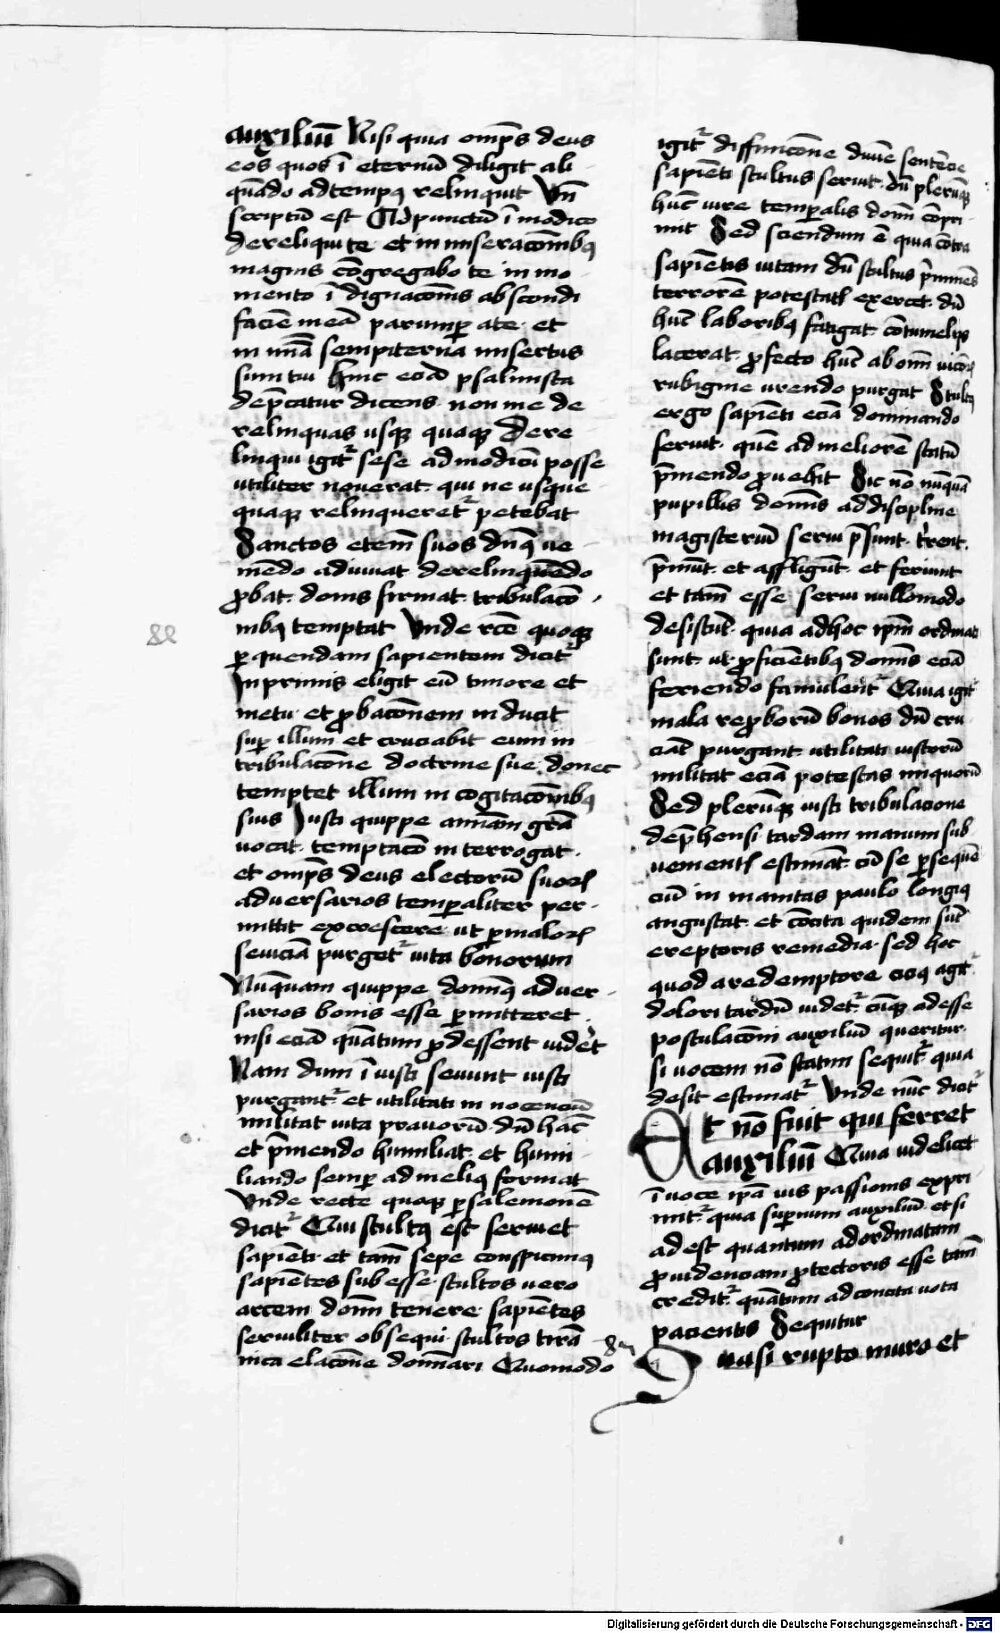 auxiliū Nisi quia omp̄s deus
eos quos ī eternū diligit ali
quādo ad tempꝰ relinquit Vn̄
scriptū est Ad punctū ī modico
dereliqui te et in miseracōnibꝰ
magnis cōgregabo te in mo
mento ī dignacōnis abscondi
faciē meā parumꝑ a te et
in mīa sempiterna misertus
sum tui hinc eciā psalmista
dep̄catur dicens non me de
relinquas usqꝫ quaqꝫ Dere
linqui igit᷑ sese ad modicū posse
utiliter noverat qui ne usque
quaqꝫ relinqueret᷑ petebat
Sanctos etem̄ suos dn̄s ve
niēdo adiuvat derelinquēdo
ꝓbat donis firmat tribulacō
nibꝰ temptat Unde rc̄e quoqꝫ
ꝑ quendam sapientem dicit᷑
In primis eligit eū timore et
metu et ꝓbacōnem inducit
suꝑ illum et cruciabit eum in
tribulacōne doctrine sue donec
temptet illum in cogitacōnibꝰ
suis Iusti quippe animam grā
vocat temptacō interrogat
et omp̄s deus electorū suoꝝ
adversarios temꝑaliter per
mittit excrescere ut ꝑ maloꝝ
seviciā purget᷑ vita bonorum
Nūquam quippe domīꝰ adver
sarios bonis esse ꝑmitteret
nisi eciā quātum ꝓdessent vidēt
Nam dum īiusti seviunt iusti
purgant᷑ et utilitati innocenciū
militat vita pravorū dū hāc
et p̄mendo humiliat et humi
liando semꝑ ad meliꝰ format
Unde recte quoqꝫ ꝑ salemonē
dicit᷑ Qui stultꝰ est serviet
sapiēti et tam̄ sepe conspicimꝰ
sapiētes subesse stultos vero
arcem dom̄ tenere sapiētes
serviliter obsequi stultos tirā
nica elacōne dom̄ari Quomodo
igit᷑ diffinicōne divīe sentēcie
sapiēti stultus serviet dū plerūqꝫ
hūc iure temꝑalis dom̄ cōpri
mit Sed sciendum ē quia cōtra
sapiētis vitam dū stultus p̄minēs
terrorē potestatꝭ exercet dū
hūc laboribꝰ fatigat cōtumeliis
lacerat ꝓfecto hūc ab om̄i vicioꝝ
rubigine urendo purgat Stultꝰ
ergo sapiēti eciā dominando
servit quē ad meliorē statū
p̄mendo ꝓvehit Sic nō nūquā
pupillis dom̄is ad discipline
magisteriū servi p̄sunt t̄rent
p̄mūt et affligūt et feriunt
et tam̄ esse servi nullomodo
desistūt quia ad hoc ip̄m ordinati
sunt ut ꝓficiētibꝰ dom̄is eciā
feriendo famulent᷑ Quia igit᷑
mala reꝓborū bonos dū cru
ciāt purgant utilitati iustorū
militat eciā potestas iniquorū
Sed plerūqꝫ iusti tribulacione
dep̄hensi tardam manum sub
venientꝭ estimāt cū se ꝑsequē
ciū in manitas paulo longiꝰ
angustat et cōcita quidem sūt
ereptoris remedia sed hoc
quod a redemptore cicꝰ agit᷑
dolori tardū videt᷑ cūqꝫ adesse
postulacōni auxiliū queritur
si vocem nō statim sequit᷑ quia
desit estimat᷑ Unde nūc dicit᷑
Et nō fuit qui ferret
auxiliū Quia videlicet
ī voce ip̄a vis passionis expri
mit᷑ quia suꝑnum auxiliū et si
adest quantum ad ordinatam
ꝓvidenciam ꝓtectoris esse tam̄
credit᷑ quātum ad concita vota
pacientis Sequitur
Quasi rupto muro et